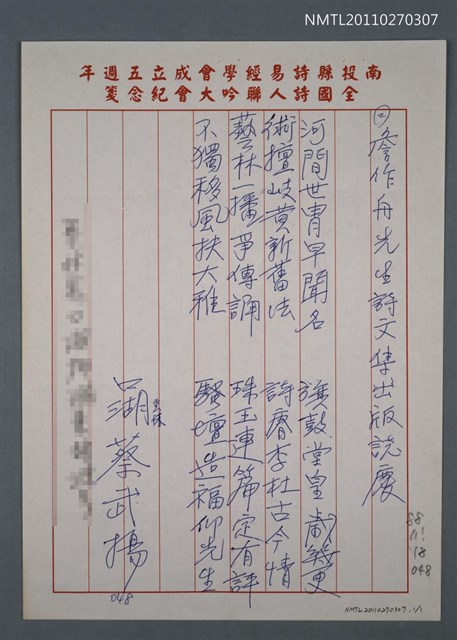 NMTL20110270307
南投縣詩易經學會成立五週年
全國詩人聯吟大會紀念箋
詹作舟先生詩文集出版誌慶
河間世胄早聞名 旗鼓堂皇歲幾更
術擅岐黃新舊法 詩賡李杜古今情
藝林一播爭傳誦 珠玉連篇定有評
不獨移風扶大雅 騷壇造福仰先生
口湖 蔡武揚
048
88
11
18
048
NMTL20110270307 1/1